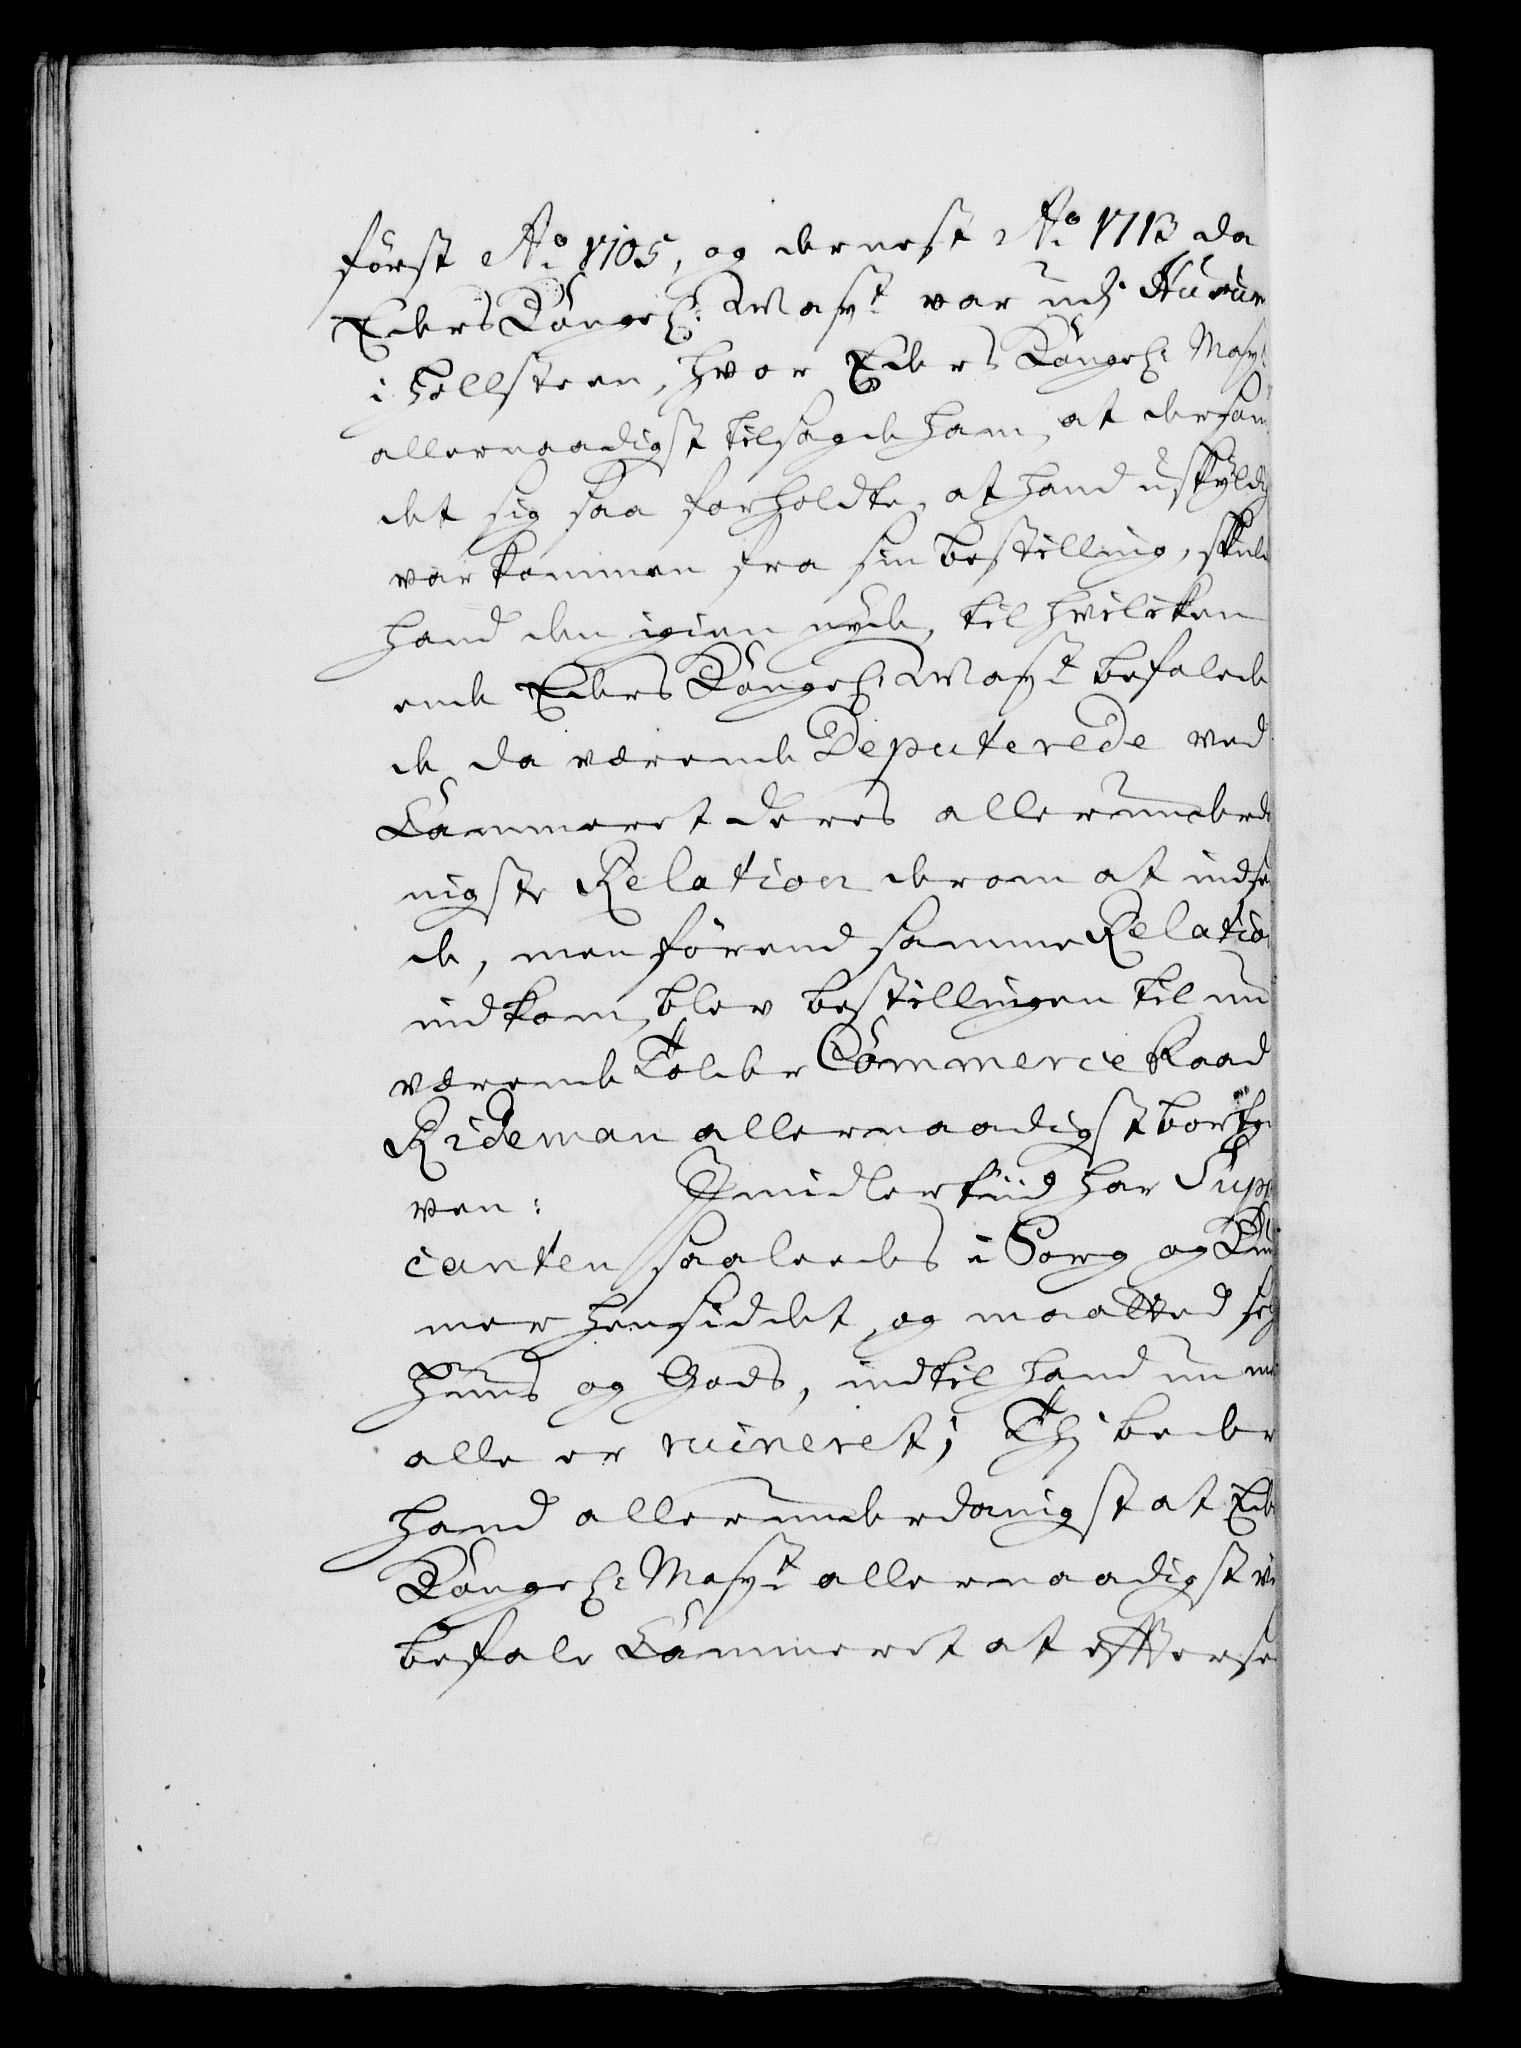 först A.o 1705, og dernest A.o 1713 da
Eders Kongel: May.t var udj
i Hollsteen, hvor Eders Kongel: May.t
allernaadigst tilsagde ham, at dersom
det sig saa forholdte, at hand uskyldig
var kommen fra sin bestilling, skulde
hand den igien nyde, til hvilcken
ende Eders Kongel: May.t befalede
de da værende Deputerede ved
Cammeret deres allerunderda
nigste Relation derom at indse
de, men förend samme Relatio
indkom, blev bestillingen til nu
værende Tolder Commerce Raad
Rideman allernaadigst bortgi
ven: Jmidlertiid har Supp
canten saaledes i Sorg og Kum
mer hensiddet, og maatted sel
Huus og Gods, indtil hand nu
alle er ruineret; Thj beder
hand allerunderdanigst at Ede
Kongel: May.t allernaadigst vi
befale Cammeret at efterse